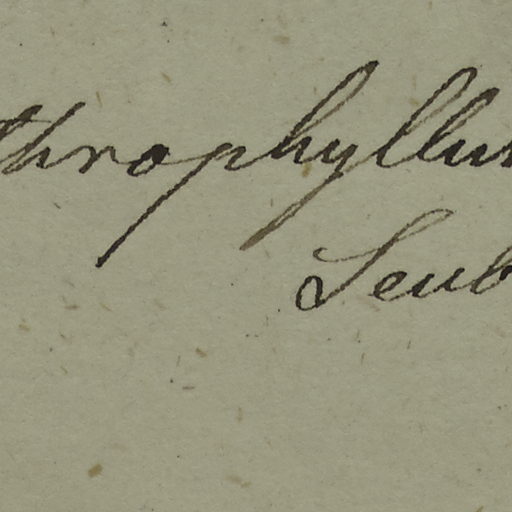 throphyllu
Seub